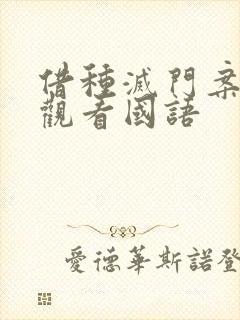 借種滅門案
觀看國語
愛德華斯諾登